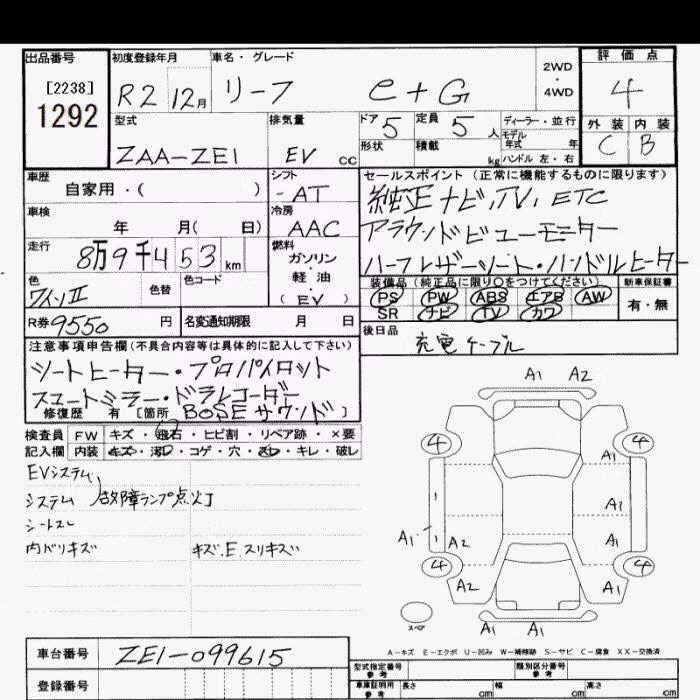 出品番号 初度登録年月 車名・グレード 2WD・4WD 評価点
[2238] 1292 R2 12月 リーフ e+G 4
型式 排気量 ドア 定員 ディーラー・並行 外装 内装
ZAA-ZE1 EV CC 5 5人 モデル年式 年 C B
形状 積載 kg ハンドル 左・右
車歴 シフト セールスポイント (正常に機能するものに限ります)
自家用・( ) -AT 純正ナビ,TV,ETC
車検 冷房 アラウンドビューモニター
年 月( 日) AAC ハーフレザーシート・ハンドルヒーター
走行 燃料
8万9千453km ガソリン・軽油
色 色替 色コード (EV) 装備品 (純正品に限り○をつけてください) 新車保証書
ワインⅡ PS PW ABS エアB AW 有・無
SR ナビ TV カワ
R券 9550円 名変通知期限 月 日 後日品
充電ケーブル
注意事項申告欄(不具合内容等は具体的に記入して下さい)
シートヒーター・プロパイロット
スマートミラー・ドラレコーダー
修復歴 有 [箇所 BOSEサウンド]
検査員 FW キズ・飛石・ヒビ割・リペア跡・×要
記入欄 内装 キズ・汚れ・コゲ・穴・スレ・キレ・破レ
EVシステム,
システム 故障ランプ点灯
シートスレ
内バリキズ キズ.E.スリキズ
A1 A2
4 4
A1
A1
A1 A2 A1
4 4
A2 A1
スペア A1 A1
A-キズ E-エクボ U-凹み W-補修跡 S-サビ C-腐食 XX-交換済
車台番号 ZE1-099615
登録番号
型式指定番号 参考 類別区分番号 参考
車庫証明用 参考 長さ cm 幅 cm 高さ cm